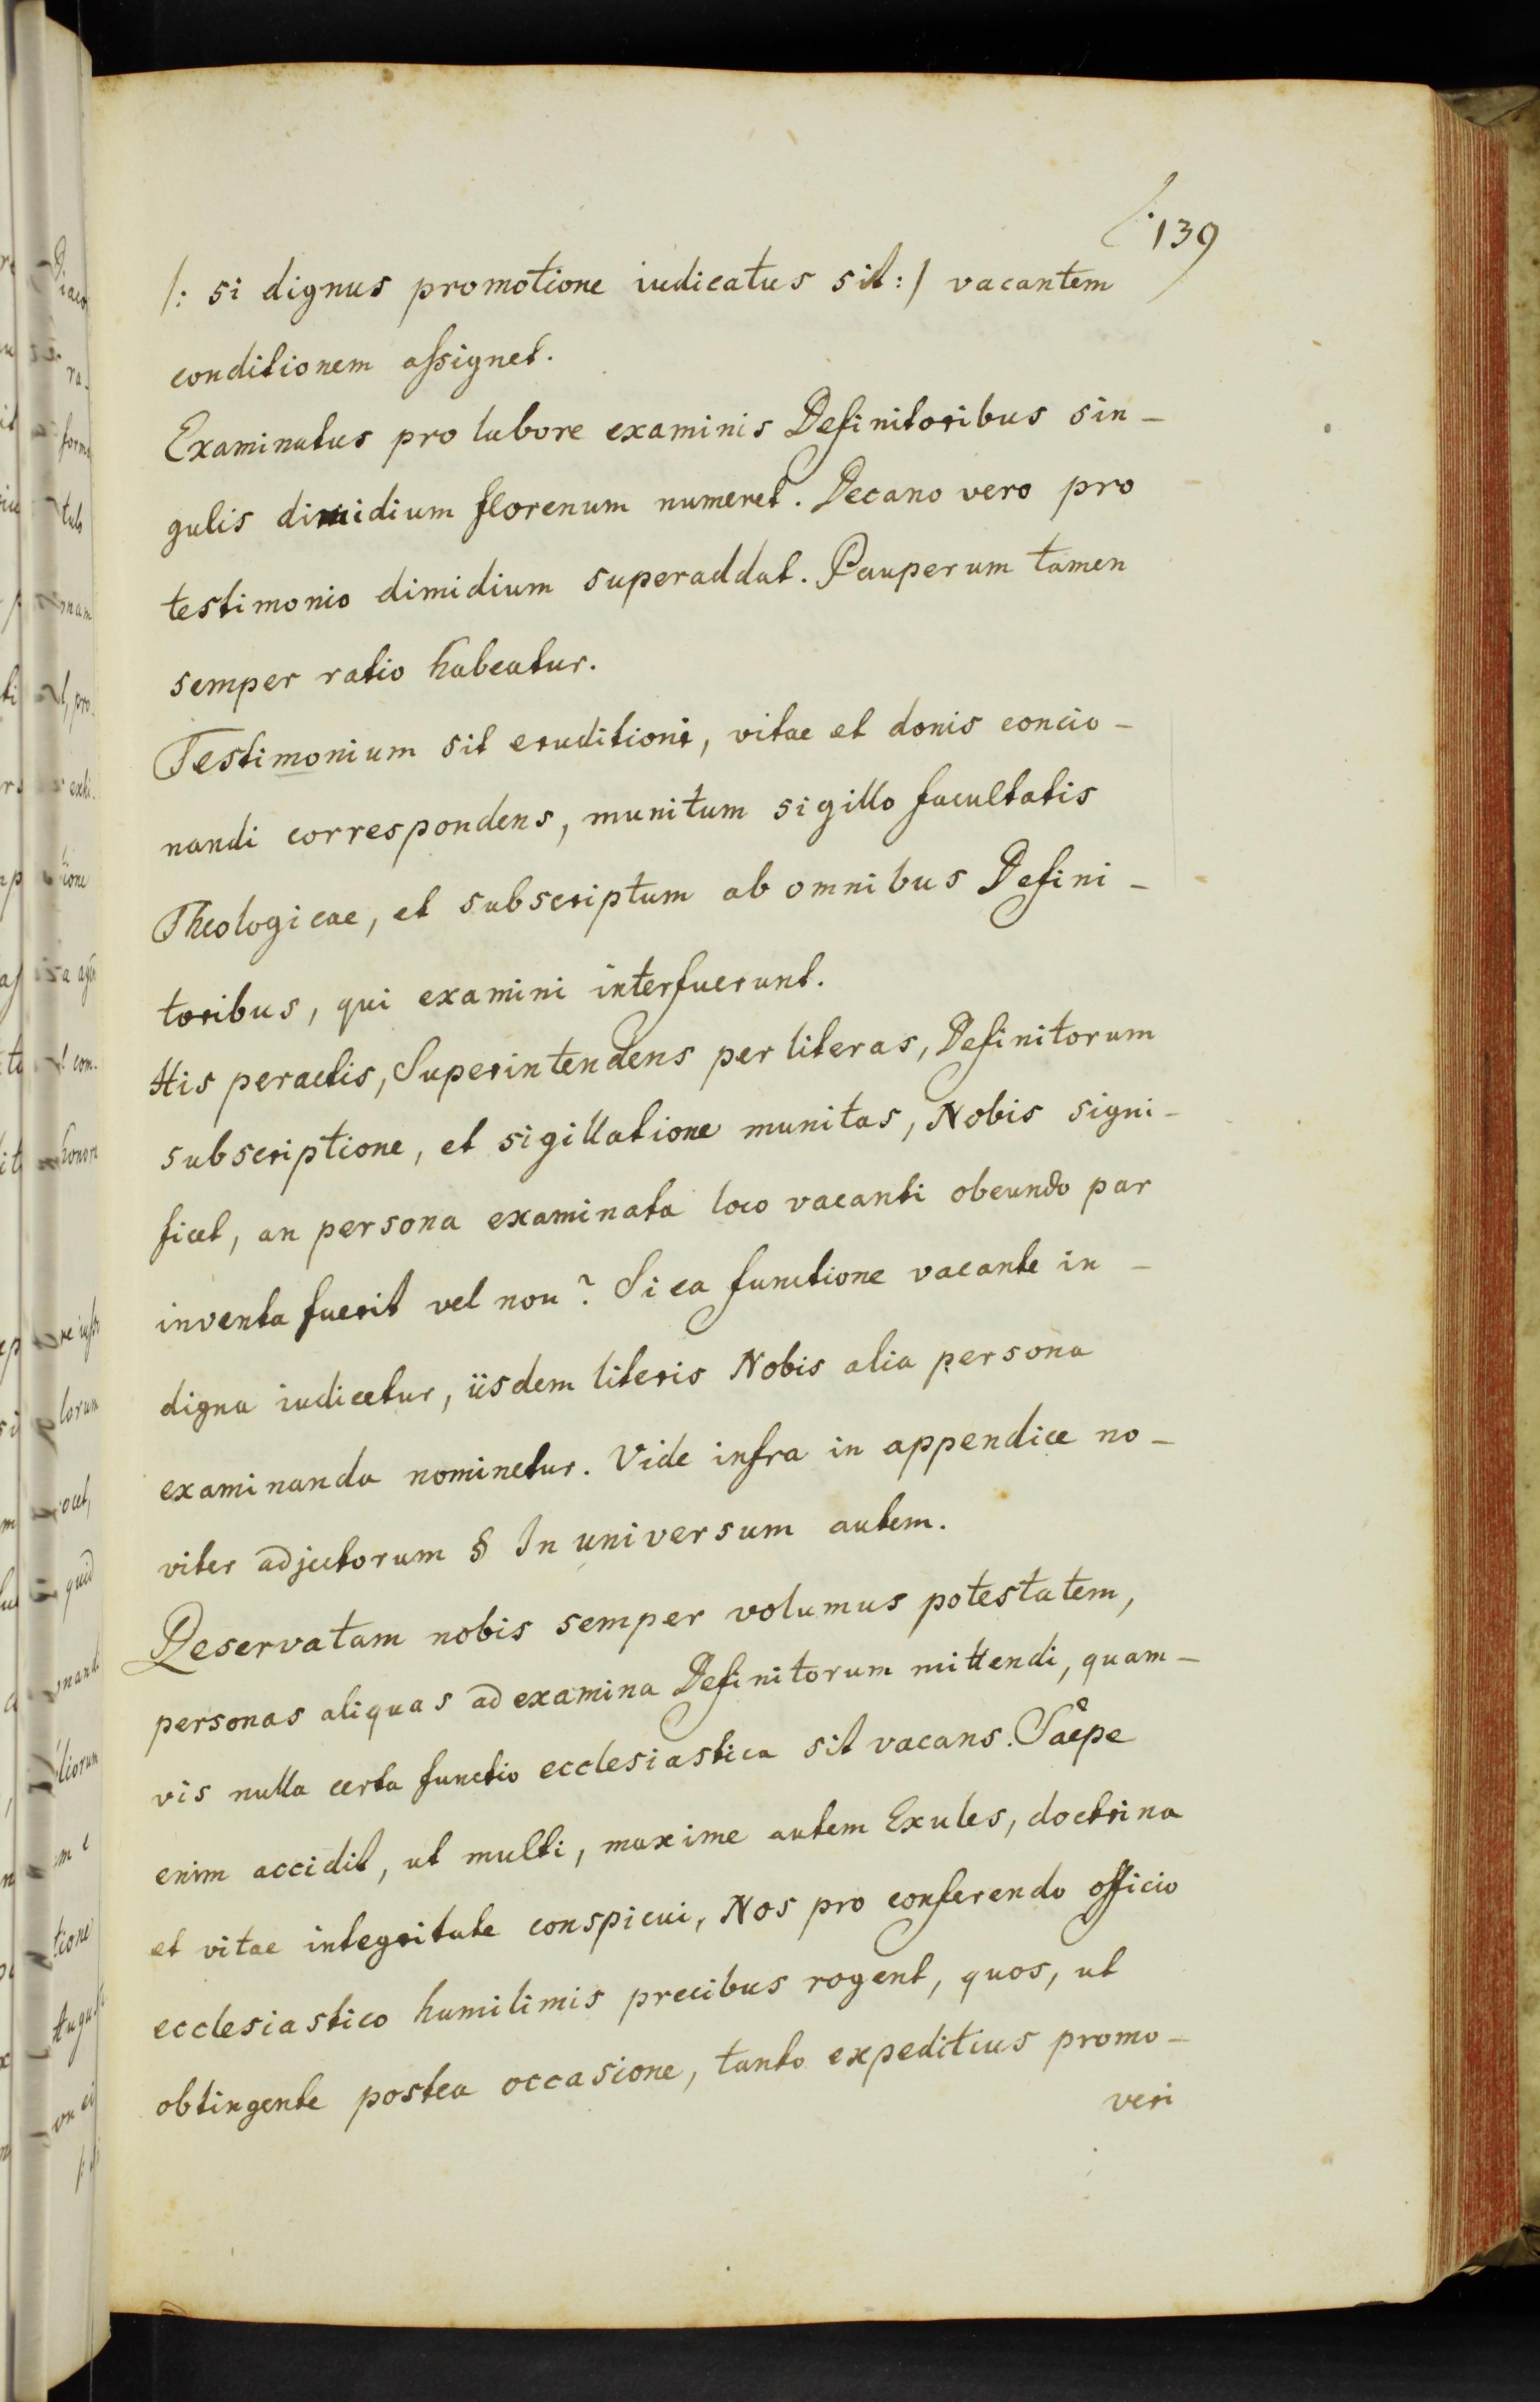 139
/: si dignus promotione iudicatus sit :/ vacantem
conditionem assignet.
Examinatus pro labore examinis Definitoribus sin-
gulis dimidium florenum numeret. Decano vero pro
testimonio dimidium superaddat. Pauperum tamen
semper ratio habeatur.
Testimonium sit eruditioni, vitae et donis concio-
nandi correspondens, munitum sigillo facultatis
Theologicae, et subscriptum ab omnibus Defini-
toribus, qui examini interfuerunt.
His peractis, Superintendens per literas, Definitorum
subscriptione, et sigillatione munitas, Nobis signi-
ficet, an persona examinata loco vacanti obeundo par
inventa fuerit vel non? Si ea functione vacante in-
digna iudicetur, iisdem literis Nobis alia persona
examinanda nominetur. Vide infra in appendice no-
viter adjectorum § In universum autem.
Reservatam nobis semper volumus potestatem,
personas aliquas ad examina Definitorum mittendi, quam-
vis nulla certa functio ecclesiastica sit vacans. Saepe
enim accidit, ut multi, maxime autem Exules, doctrina
et vitae integritate conspicui, Nos pro conferendo officio
ecclesiastico humilimis precibus rogent, quos, ut
obtingente postea occasione, tanto expeditius promo-
veri